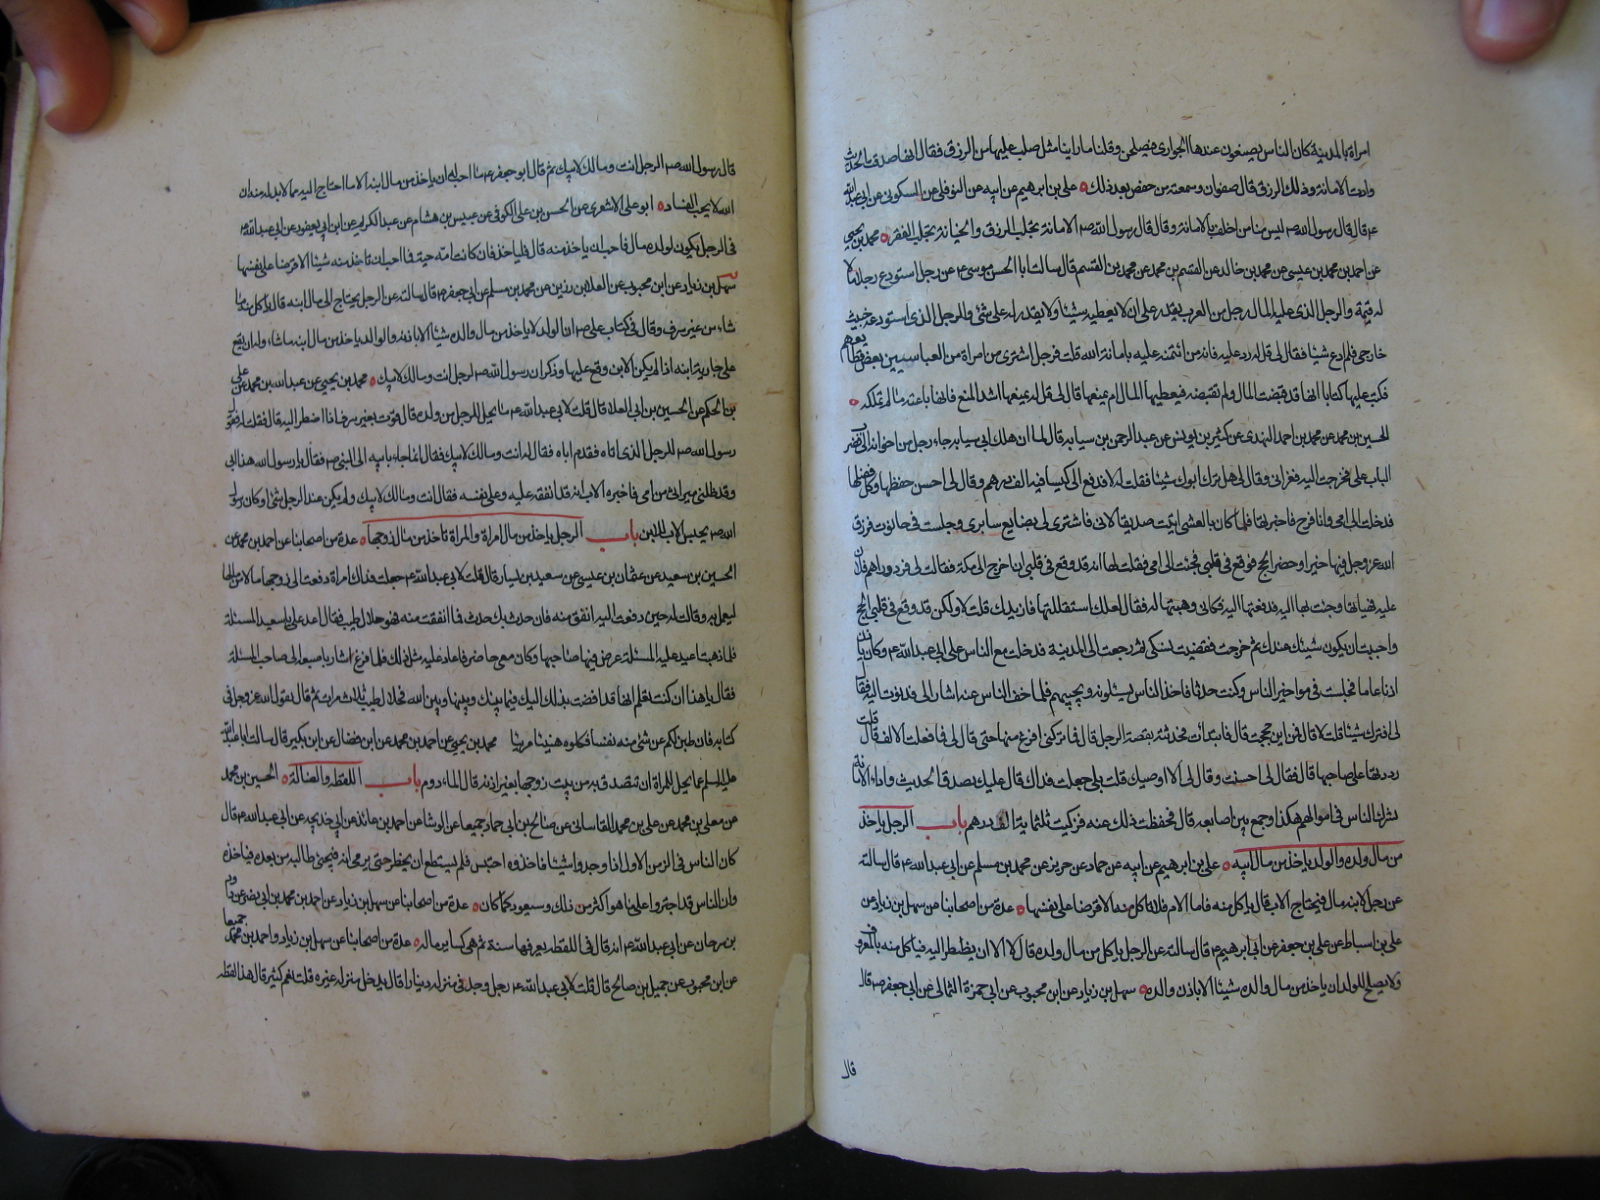 امراة بالمدينة كان الناس يضعون عندها الجواري فيصلحن وقلنا ما راينا مثل صلب عليها من الرزق فقال انها صدقت الحديث
وادت الامانة وذلك الرزق قال صفوان وسمعته من حفص بعد ذلك ه علي بن ابرهيم عن ابيه عن النوفلي عن السكوني عن ابي عبدالله
ع قال قال رسول الله ص ليس منا من اخلف بالامانة وقال قال رسول الله ص الامانة تجلب الرزق والخيانة تجلب الفقر ه محمد بن يحيى
عن احمد بن محمد بن عيسى عن محمد بن خالد عن القسم بن محمد عن محمد بن القسم قال سالت ابا الحسن موسى ع عن رجل استودع رجلا مالا
له قيمة والرجل الذي عليه المال رجل من العرب يقدر على ان لا يعطيه شيئا ولا يقدر له على شئ والرجل الذي استودعه خبيث
خارجي فلم ادع شيئا فقال لي قل له رد عليه فانه من ائتمنه عليه بامانة الله قلت فرجل اشترى من امراة من العباسيين بعض قطايعهم
فكتب عليها كتابا انها قد قبضت المال ولم تقبضه فيعطيها المال ام يمنعها قال لي قل له يمنعها اشد المنع فانها باعته ما لم تملكه ه
الحسين بن محمد عن محمد بن احمد النهدي عن كثير بن يونس عن عبد الرحمن بن سيابة قال لما ان هلك ابي سيابة جاء رجل من اخوانه الي فضرب
الباب علي فخرجت اليه فعزاني وقال لي هل ترك ابوك شيئا فقلت له لا فدفع الي كيسا فيه الف درهم وقال لي احسن حفظها وكل فضلها
فدخلت الى امي وانا فرح فاخبرتها فلما كان بالعشي اتيت صديقا لابي فاشترى لي بضايع سابري وجلست في حانوت فرزق
الله عز وجل فيها خيرا وحضر الحج فوقع في قلبي فجئت الى امي فقلت لها انه قد وقع في قلبي ان اخرج الى مكة فقالت لي فرد دراهم فلان
عليه فهيأتها وجئت بها اليه فدفعتها اليه فكاني وهبتها له فقال لعلك استقللتها فازيدك قلت لا ولكن قد وقع في قلبي الحج
واحببت ان يكون شيئك عندك ثم خرجت فقضيت نسكي ثم رجعت الى المدينة فدخلت مع الناس على ابي عبدالله ع وكان ياذن
اذنا عاما فجلست في مواخير الناس وكنت حدثا فاخذ الناس يسئلونه ويجيبهم فلما خف الناس عنه اشار الي فدنوت اليه فقا
لي افترك شيئا قلت لا قال فمن اين حججت قال فابتدات فحدثته بقصة الرجل قال فما تركني افرغ منها حتى قال لي فما فعلت الالف قال قلت
رددتها على صاحبها قال فقال لي احسنت وقال لي الا اوصيك قلت بلى جعلت فداك قال عليك بصدق الحديث واداء الامانة
تشرك الناس في اموالهم هكذا وجمع بين اصابعه قال فحفظت ذلك عنه فزكيت ثلثمائة الف درهم باب الرجل ياخذ
من مال ولده والولد ياخذ من مال ابيه ه علي بن ابرهيم عن ابيه عن حماد عن حريز عن محمد بن مسلم عن ابي عبدالله ع قال سالته
عن رجل لابنه مال فيحتاج الاب قال ياكل منه فاما الام فلا تاكل منه الا قرضا على نفسها ه عدة من اصحابنا عن سهل بن زياد عن
علي بن اسباط عن علي بن جعفر عن ابي ابرهيم ع قال سالته عن الرجل ياكل من مال ولده قال لا الا ان يضطر اليه فياكل منه بالمعروف
ولا يصلح للولد ان ياخذ من مال والده شيئا الا باذن والده ه سهل بن زياد عن ابن محبوب عن ابي حمزة الثمالي عن ابي جعفر ع قال
قال
قال رسول الله ص لرجل انت ومالك لابيك ثم قال ابو جعفر ع ما احب له ان ياخذ من مال ابنه الا ما احتاج اليه مما لا بد له منه ان
الله لا يحب الفساد ه ابو علي الاشعري عن الحسن بن علي الكوفي عن عبيس بن هشام عن عبد الكريم عن ابن ابي يعفور عن ابي عبد الله ع
في الرجل يكون لولده مال فاحب ان ياخذ منه قال فلياخذ فان كانت امه حية فما احب ان تاخذ منه شيئا الا قرضا على نفسها
سهل بن زياد عن ابن محبوب عن العلا بن رزين عن محمد بن مسلم عن ابي جعفر ع قال سالته عن الرجل يحتاج الى مال ابنه قال ياكل منه ما
شاء من غير سرف وقال في كتاب علي ع ان الولد لا ياخذ من مال والده شيئا الا باذنه والوالد ياخذ من مال ابنه ما شاء وله ان يقع
على جارية ابنه اذا لم يكن الابن وقع عليها وذكر ان رسول الله ص قال لرجل انت ومالك لابيك ه محمد بن يحيى عن عبدالله بن محمد عن علي
بن الحكم عن الحسين بن ابي العلا قال قلت لابي عبدالله ع ما يحل للرجل من ولده قال قوت بغير سرف اذا اضطر اليه قال فقلت له فقول
رسول الله ص للرجل الذي اتاه فقدم اباه فقال له انت ومالك لابيك فقال انما جاء بابيه الى النبي ص فقال يا رسول الله هذا ابي
وقد ظلمني ميراثي من امي فاخبره الاب انه قد انفقه عليه وعلى نفسه فقال انت ومالك لابيك ولم يكن عند الرجل شئ او كان رسول
الله ص يحبس الاب للابن باب الرجل ياخذ من مال امراة والمراة تاخذ من مال زوجها ه عدة من اصحابنا عن احمد بن محمد عن
الحسين بن سعيد عن عثمان بن عيسى عن سعيد بن يسار قال قلت لابي عبدالله ع جعلت فداك امراة دفعت الى زوجها مالا من مالها
ليعمل به وقالت له حين دفعت اليه انفق منه فان حدث بك حدث فما انفقت منه فهو حلال طيب فقال اعد علي يا سعيد المسئلة
فلما ذهبت اعيد عليه المسئلة عرض فيها صاحبها وكان معي حاضر فاعاد عليه مثل ذلك فلما فرغ اشار باصبعه الى صاحب المسئلة
فقال يا هذا ان كنت تعلم انها قد افضت بذلك اليك فيما بينك وبينها وبين الله فحلال طيب ثلاث مرات ثم قال يقول الله عز وجل في
كتابه فان طبن لكم عن شئ منه نفسا فكلوه هنيئا مريئا محمد بن يحيى عن احمد بن محمد عن ابن فضال عن ابن بكير قال سالت ابا عبدالله
عليه السلم عما يحل للمراة ان تتصدق به من بيت زوجها بغير اذنه قال المادوم باب اللقطة والضالة ه الحسين بن محمد
عن معلى بن محمد عن علي بن محمد القاساني عن صالح بن ابي حماد جميعا عن الوشا عن احمد بن عائذ عن ابي خديجة عن ابي عبدالله ع قال
كان الناس في الزمن الاول اذا وجدوا شيئا فاخذوه احتبس فلم يستطع ان يخطو حتى يرمي به فيجئ طالبه من بعده فياخذه
وان الناس قد اجتروا على ما هو اكثر من ذلك وسيعود كما كان ه عدة من اصحابنا عن سهل بن زياد عن احمد بن محمد بن ابي نصر عن داود
بن سرحان عن ابي عبدالله ع انه قال في اللقطة يعرفها سنة ثم هي كساير ماله ه عدة من اصحابنا عن سهل بن زياد واحمد بن محمد جميعا
عن ابن محبوب عن جميل بن صالح قال قلت لابي عبدالله ع رجل وجد في منزله دينارا قال يدخل منزله غيره قلت نعم كثير قال هذا لقطة